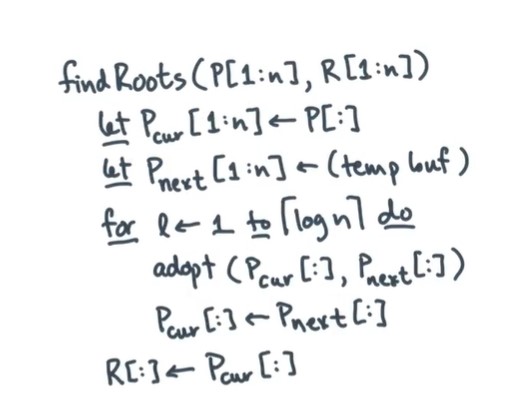 findRoots(P[1:n], R[1:n])
let Pcur[1:n] ← P[:]
let Pnext[1:n] ← (temp buf)
for l ← 1 to ⌈log n⌉ do
adopt (Pcur[:], Pnext[:])
Pcur[:] ← Pnext[:]
R[:] ← Pcur[:]